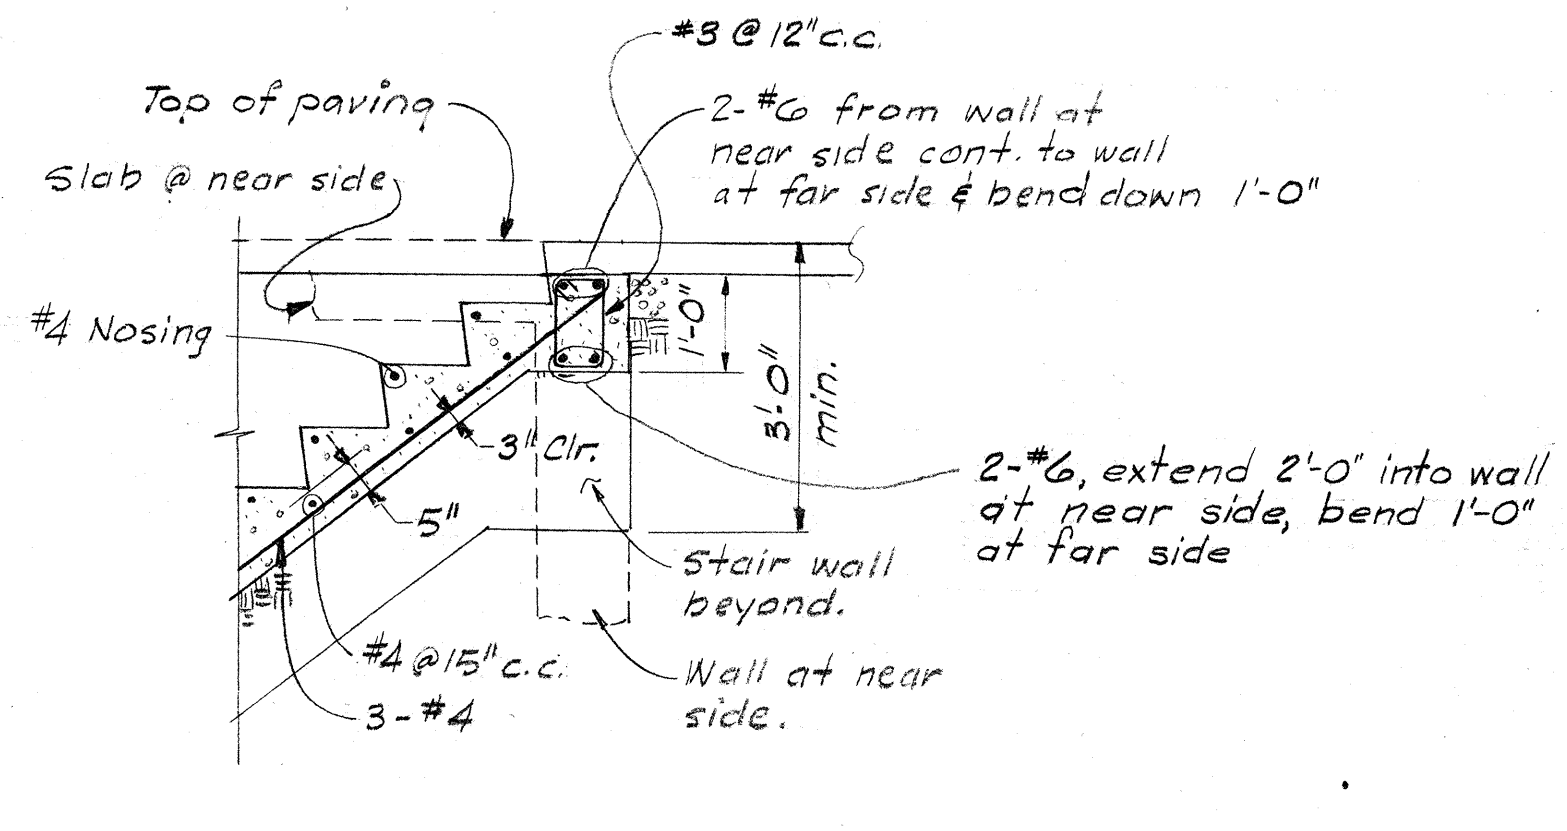 #3 @ 12" c.c.
Top of paving
2-#6 from wall at
near side cont. to wall
at far side & bend down 1'-0"
Slab @ near side
#4 Nosing
1'-0"
3'-0"
min.
3" Clr.
5"
2-#6, extend 2'-0" into wall
at near side, bend 1'-0"
at far side
Stair wall
beyond.
#4 @ 15" c.c.
3-#4
Wall at near
side.